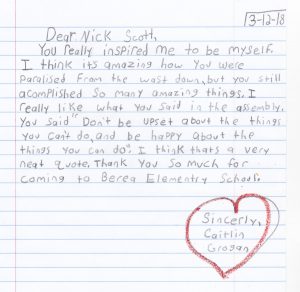 3-12-18
Dear Nick Scott,
You really inspired me to be myself.
I think its amazing how you were
paralised from the wast down, but you still
acomplished so many amazing things. I
really like what you said in the assembly.
You said" Don't be upset about the things
you can't do, and be happy about the
things you can do". I think thats a very
neat quote. Thank you so much for
coming to Berea Elementry School.
Sincerly,
Caitlin
Grogan